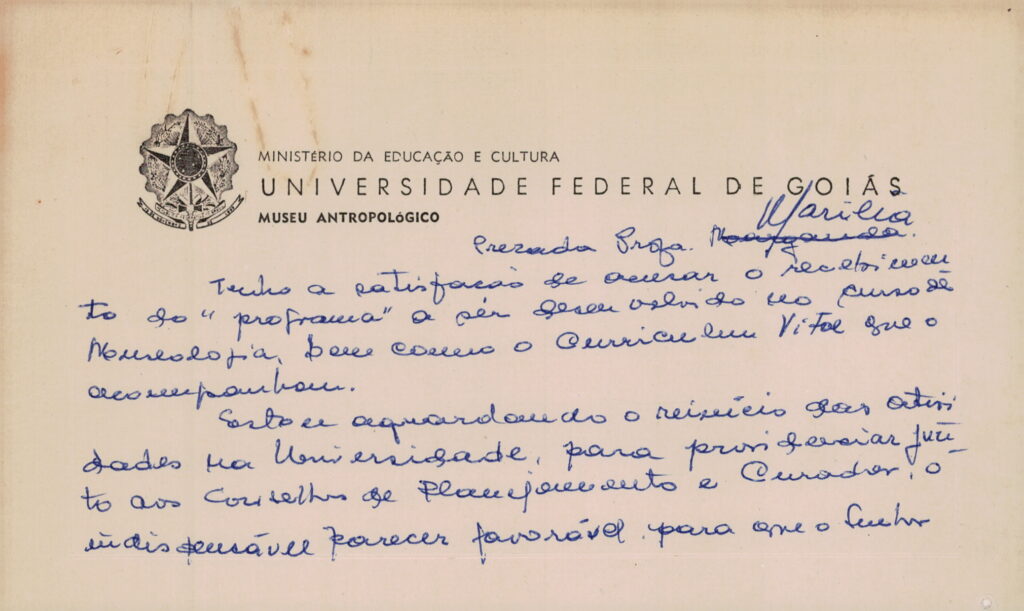 MINISTÉRIO DA EDUCAÇÃO E CULTURA
UNIVERSIDADE FEDERAL DE GOIÁS
MUSEU ANTROPOLÓGICO
Marilia
Prezada Profa.
Tenho a satisfação de acusar o recebimen
to do "programa" a sér desenvolvido no curso de
Museologia, bem como o Curriculum Vitae que o
acompanham.
Estou aguardando o reinício das ativi
dades na Universidade, para providenciar jun
to aos Conselhos de Planejamento e Curador, o
indispensável parecer favorável para que o Senhor